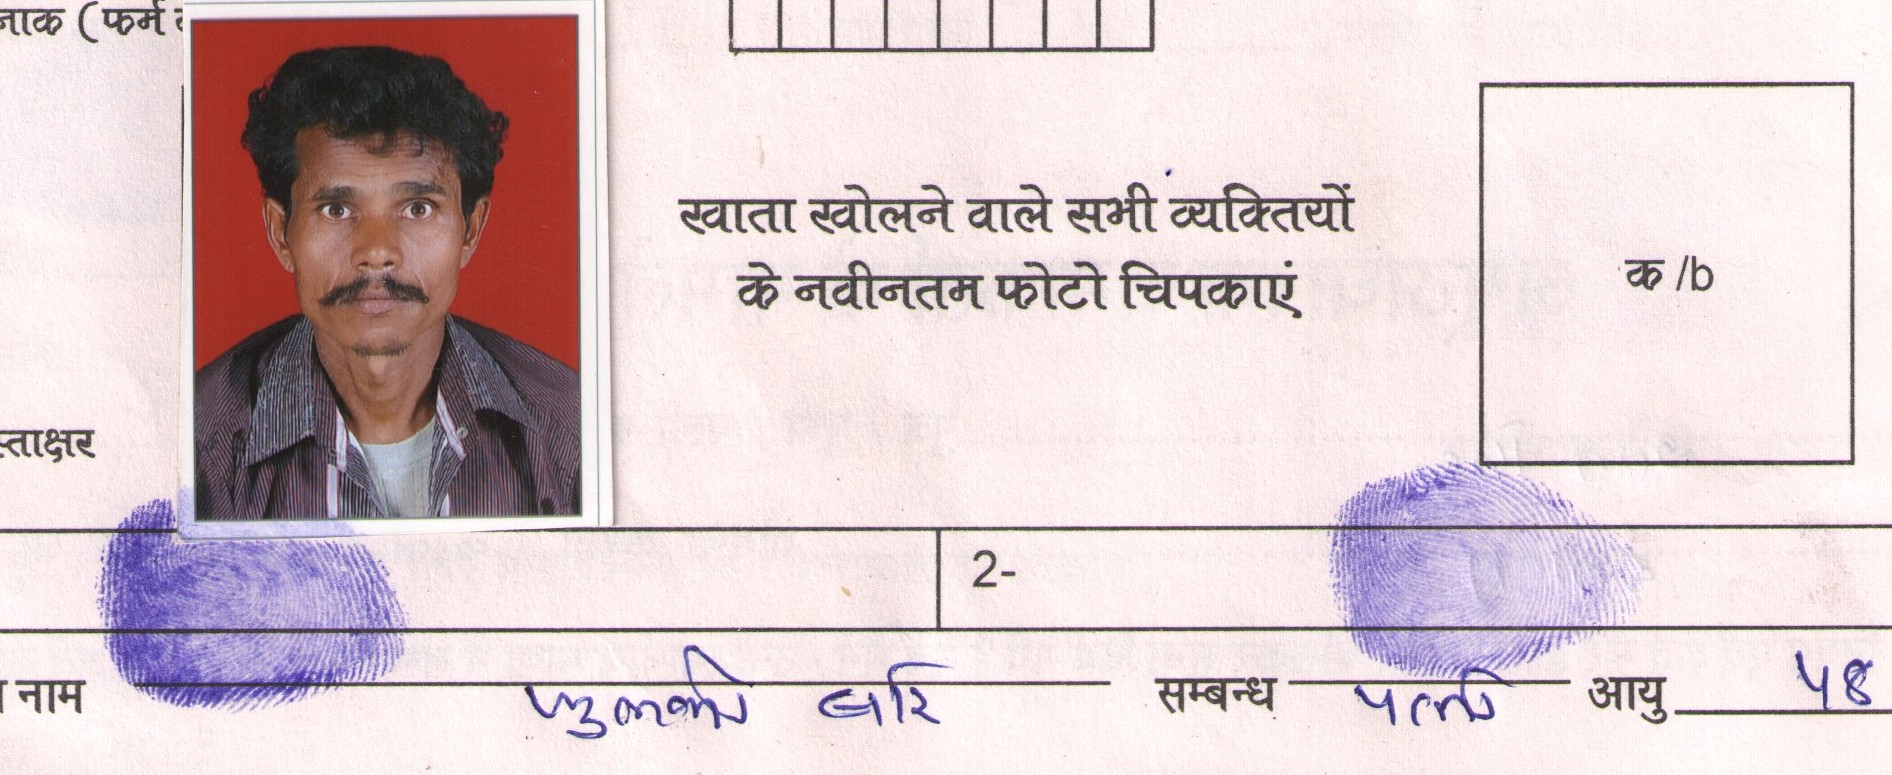 नाक (फर्म
खाता खोलने वाले सभी व्यक्तियों
के नवीनतम फोटो चिपकाएं
क /b
स्ताक्षर
2-
नाम सम्बन्ध पत्नी आयु